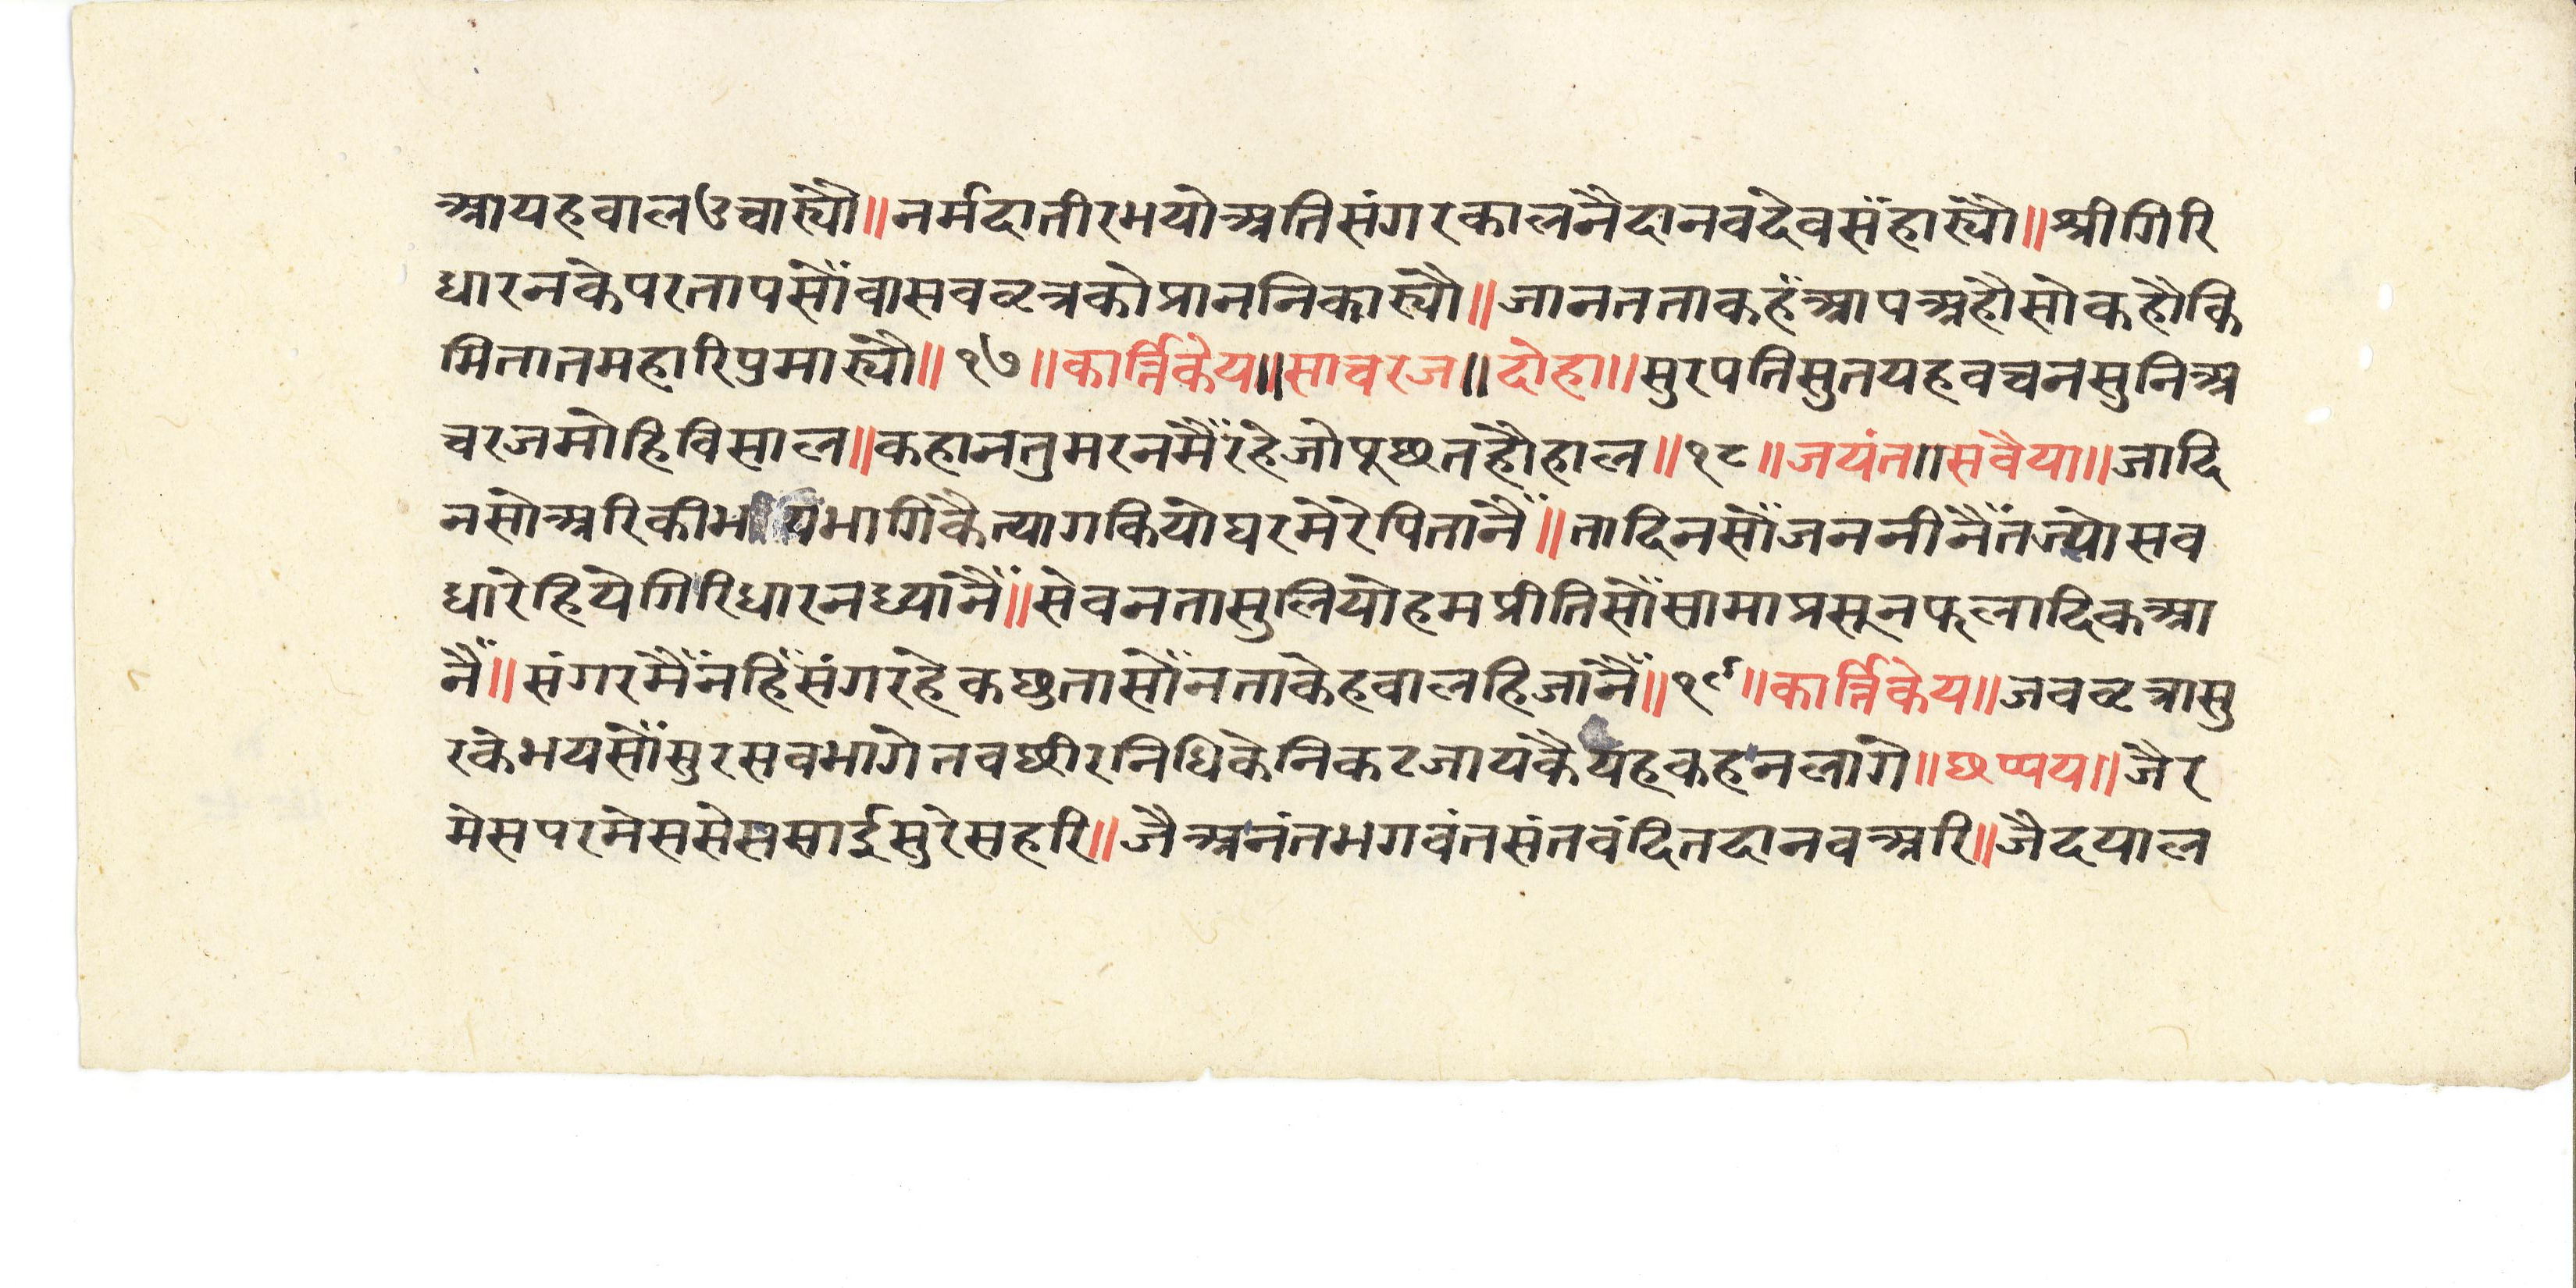 आयहवालउचार्‍यौ॥नर्मदातीरभयोअतिसंगरकालनैदानवदेवसंहार्‍यौ॥श्रीगिरि
धारनकेपरतापसौंवासववृत्रकोप्राननिकार्‍यौ॥जानतताकहंआपअहौसोकहौकि
मितातमहारिपुमार्‍यौ॥१७॥कार्त्तिकेय॥साचरज॥दोहा॥सुरपतिसुतयहवचनसुनिअ
चरजमोहिविसाल॥कहानतुमरनमैंरहेजोपूछतहौहाल॥१८॥जयंत॥सवैया॥जादि
नसोअरिकीभ यभागिकैत्यागकियोघरमेरेपितानैं॥तादिनसौंजननीनैंतज्योसव
धारेहियेगिरिधारनध्यानैं॥सेवनतासुलियोहमप्रीतिसौंसामाप्रसूनफलादिकआ
नैं॥संगरमैंनहिंसंगरहेकछुतासौंनताकेहवालहिजानैं॥१९॥कार्त्तिकेय॥जववृत्रासु
रकेभयसौंसुरसवभागेतवछीरनिधिकेनिकटजायकैयहकहनलागे॥छप्पय॥जैर
मेसपरमेससेससाईसुरेसहरि॥जैअनंतभगवंतसंतवंदितदानवअरि॥जैदयाल